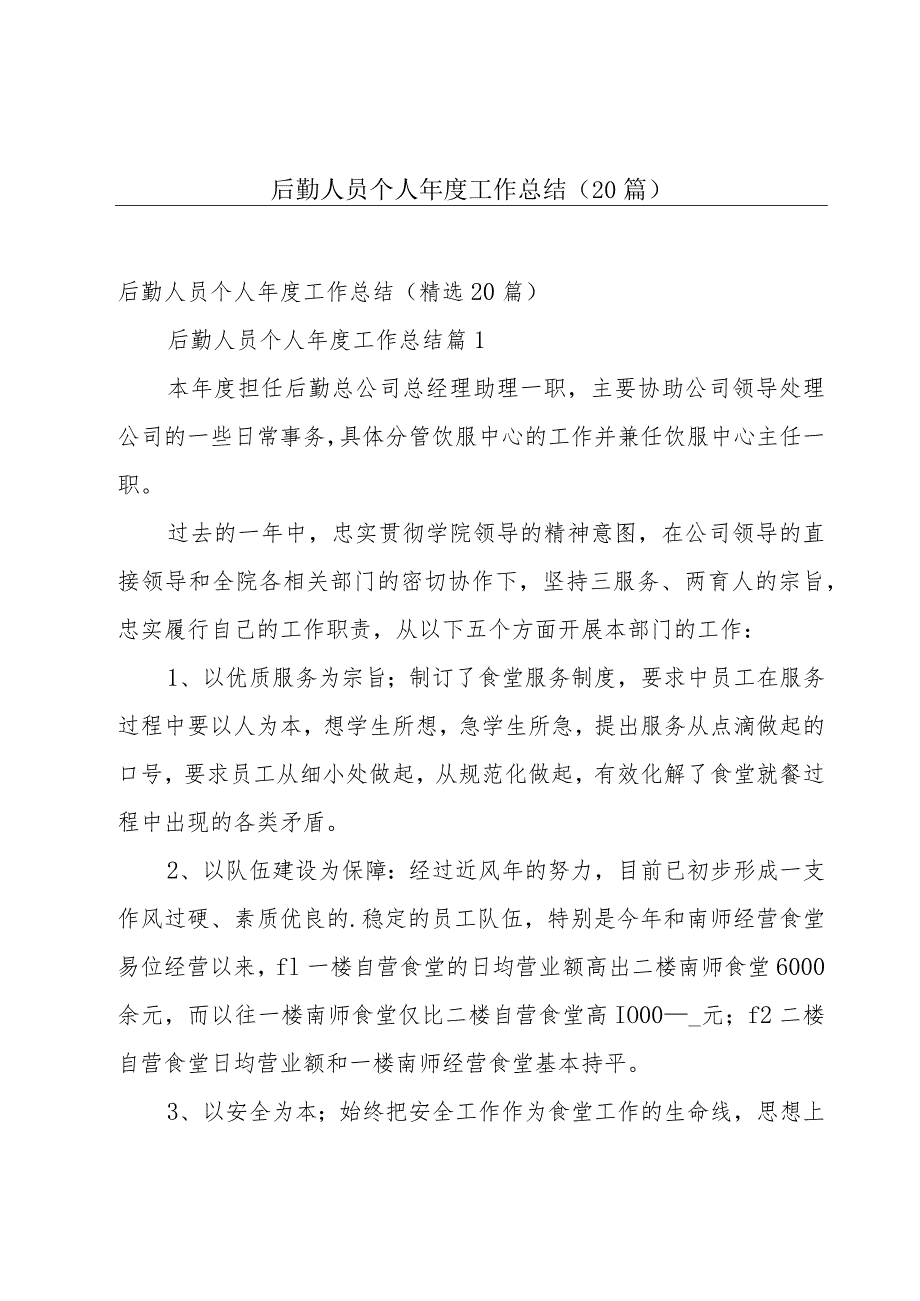 后勤人员个人年度工作总结（20 篇）
后勤人员个人年度工作总结（精选 20 篇）
后勤人员个人年度工作总结篇 1
本年度担任后勤总公司总经理助理一职，主要协助公司领导处理
公司的一些日常事务，具体分管饮服中心的工作并兼任饮服中心主任一
职。
过去的一年中，忠实贯彻学院领导的精神意图，在公司领导的直
接领导和全院各相关部门的密切协作下，坚持三服务、两育人的宗旨，
忠实履行自己的工作职责，从以下五个方面开展本部门的工作：
1、以优质服务为宗旨；制订了食堂服务制度，要求中员工在服务
过程中要以人为本，想学生所想，急学生所急，提出服务从点滴做起的
口号，要求员工从细小处做起，从规范化做起，有效化解了食堂就餐过
程中出现的各类矛盾。
2、以队伍建设为保障：经过近风年的努力，目前已初步形成一支
作风过硬、素质优良的.稳定的员工队伍，特别是今年和南师经营食堂
易位经营以来，fl 一楼自营食堂的日均营业额高出二楼南师食堂 6000
余元，而以往一楼南师食堂仅比二楼自营食堂高 IOOO—_元；f2 二楼
自营食堂日均营业额和一楼南师经营食堂基本持平。
3、以安全为本；始终把安全工作作为食堂工作的生命线，思想上